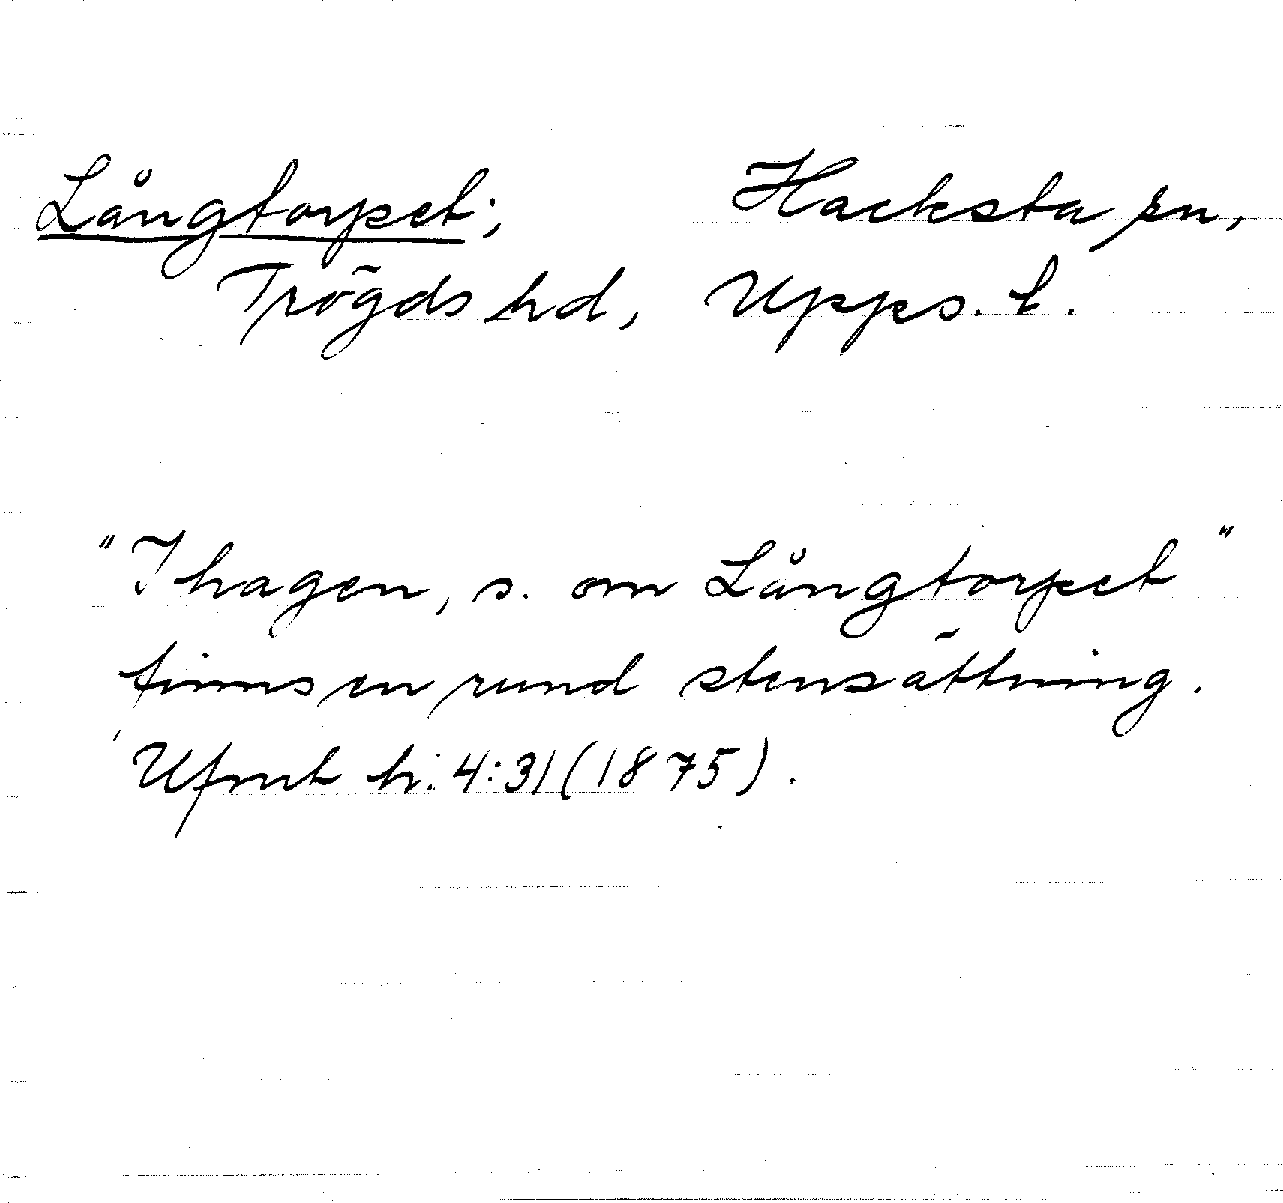 Långtorpet; Hacksta sn,
Trögds hd, Upps. l.
"I hagen, s. om Långtorpet"
finns en rund stensättning.
Ufmt h. 4:31 (1875).